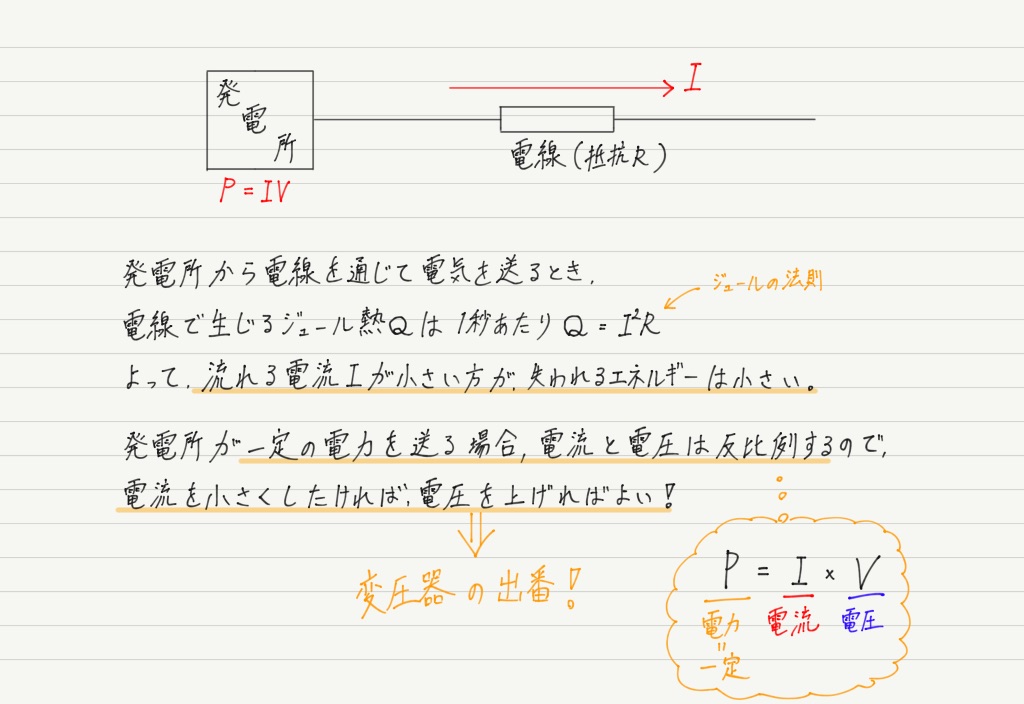 発電所
I
電線(抵抗R)
P=IV
発電所から電線を通じて電気を送るとき,
ジュールの法則
電線で生じるジュール熱Qは 1秒あたり Q = I²R
よって, 流れる電流Iが小さい方が, 失われるエネルギーは小さい。
発電所が一定の電力を送る場合, 電流と電圧は反比例するので,
電流を小さくしたければ, 電圧を上げればよい!
変圧器の出番!
P = I × V
電力 電流 電圧
=
一定